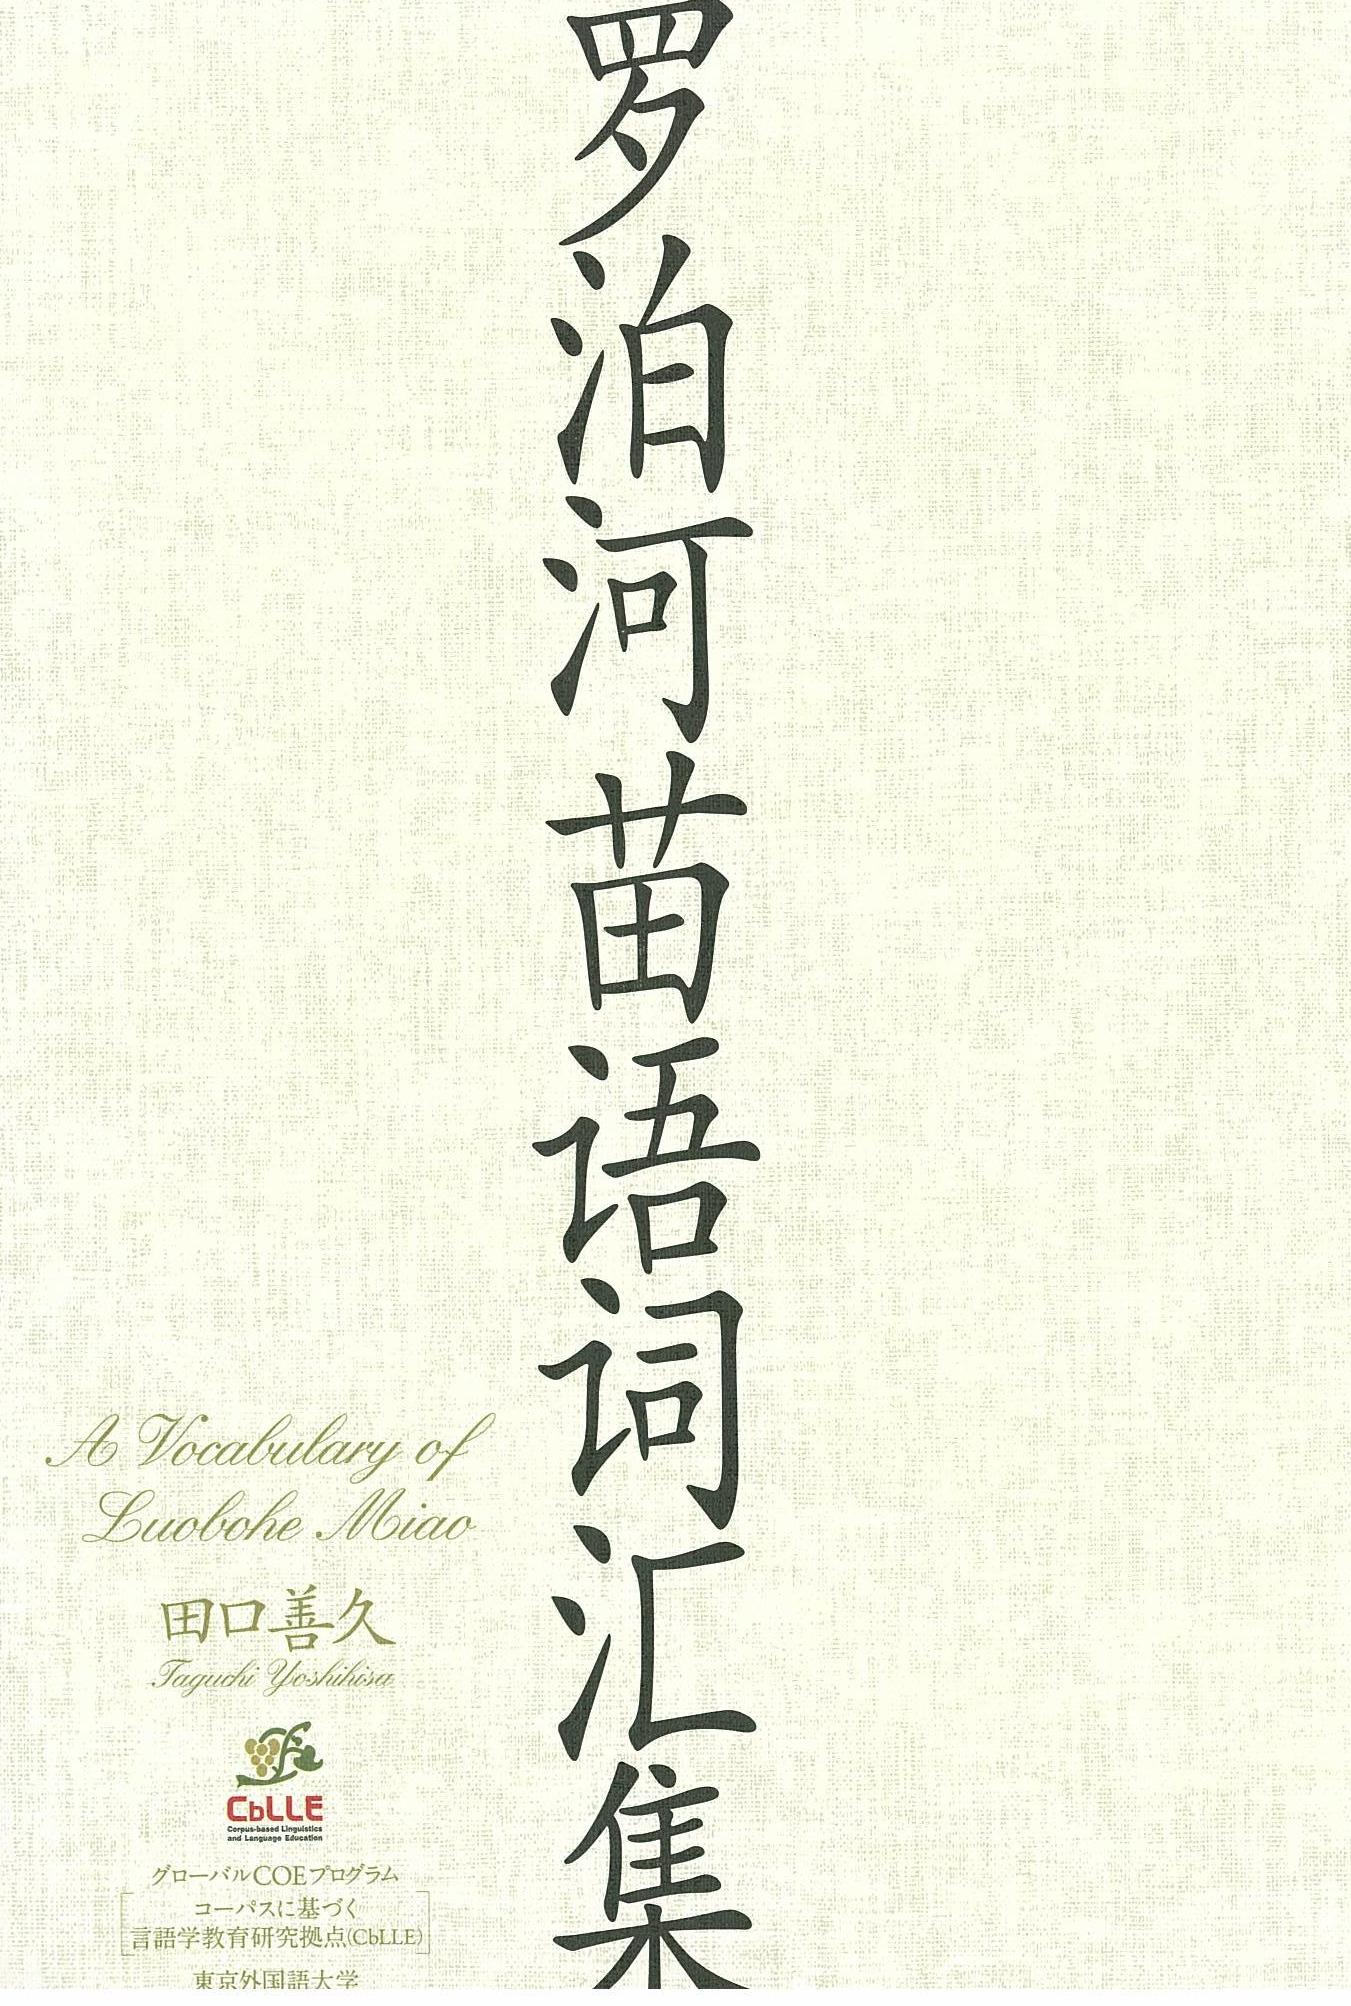 罗泊河苗语词汇集
A Vocabulary of
Luobohe Miao
田口善久
Taguchi Yoshihisa
CbLLE
Corpus-based Linguistics
and Language Education
グローバルCOEプログラム
コーパスに基づく
言語学教育研究拠点(CbLLE)
東京外国語大学